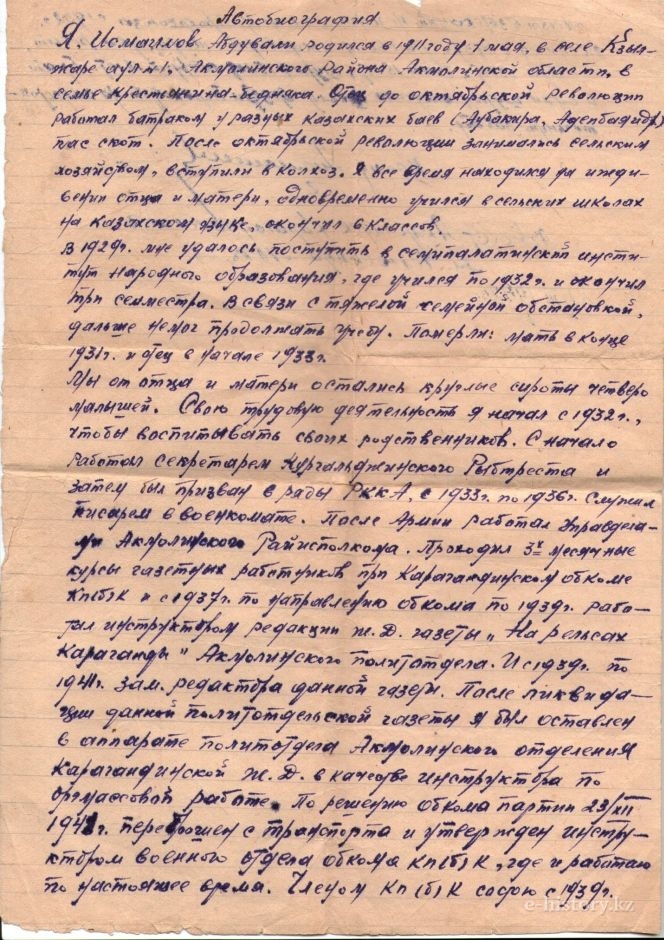 Автобиография
Я. Исмагилов Абдували родился в 1911 году 1 мая, в селе Кзыл-
жаре аул №1. Акмолинского района Акмолинской области, в
семье крестьянина бедняка. Отец до октябрьской революции
работал батраком у разных Казахских баев (Аубакира,
пас скот. После октябрьской революции занимались сельским
хозяйством, вступили в колхоз. Я все время находился на ижди-
вении отца и матери, одновременно учился в сельских школах
на Казахском языке окончил 6 классов.
В 1929г. мне удалось поступить в семипалатинский инсти-
тут народного образования, где учился по 1932г. и окончил
три семместра. В связи с тяжелой семейной обстановкой,
дальше немог продолжать учебу. Померли: мать в конце
1931г. и отец в начале 1933г.
Мы от отца и матери остались круглые сироты четверо
малышей. Свою трудовую деятельность я начал с 1932г.,
чтобы воспитывать своих родственников. Сначало
работал секретарем Кургальджинского Рыбтреста и
затем был призван в ряды РККА, с 1933г. по 1936г. служил
писарем в военкомате. После Армии работал Управдела-
ми Акмолинского Райисполкома. Проходил 3х месячные
курсы газетных работников при Карагандинском обкоме
КП(б)К и с 1937г. по направлению обкома по 1939г. рабо-
тал инструктором редакции ж.д. газеты „На рельсах
Караганды" Акмолинского политотдела. И с 1939г. по
1941г. зам. редактора данной газеты. После ликвида-
ции данной политотдельской газеты я был оставлен
в аппарате политотдела Акмолинского отделения
Карагандинской ж.д. в качестве инструктора по
оргмассовой работе. По решению обкома партии 23/XII
1941г. переброшен с транспорта и утвержден инстру-
ктором военного отдела обкома КП(б)К, где и работаю
по настоящее время. Членом КП(б)К состою с 1939г.
e-history.kz